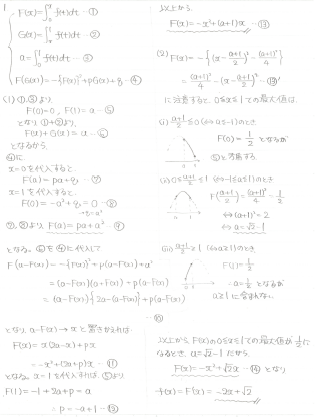 1
F(x)=∫₀ˣ f(t)dt —①
G(x)=∫ₓ¹ f(t)dt —②
a=∫₀¹ f(t)dt —③
F(G(x))=-{F(x)}²+pG(x)+q —④
(1) ①,③より
F(0)=0, F(1)=a —⑤
となり ①+②より
F(x)+G(x)=a —⑥
となるから
④に
x=0を代入すると
F(a)=pa+q —⑦
x=1を代入すると
F(0)=-a²+q=0 —⑧
→q=a²
⑦,⑧より F(a)=pa+a² —⑨
となる。⑥を④に代入して
F(a-F(x))=-{F(x)}²+p(a-F(x))+a²
=(a-F(x))(a+F(x))+p(a-F(x))
=(a-F(x)){2a-(a-F(x))}+p(a-F(x))
—⑩
となり a-F(x)→xと置きかえれば
F(x)=x(2a-x)+px
=-x²+(2a+p)x —⑪
となる。x=1を代入すれば、⑤より
F(1)=-1+2a+p=a
⇔p=-a+1 —⑫
以上から
F(x)=-x²+(a+1)x —⑬
(2) F(x)=-{(x-(a+1)/2)²-(a+1)²/4}
=(a+1)²/4-(x-(a+1)/2)² —⑬'
に注意すると 0≤x≤1での最大値は
(i) (a+1)/2≤0(⇔a≤-1)のとき
F(0)=1/2 となるが
⑤と矛盾する
(ii) 0≤(a+1)/2≤1 (⇔-1≤a≤1)のとき
F((a+1)/2)=(a+1)²/4=1/2
⇔(a+1)²=2
⇔a=√2-1
(iii) (a+1)/2≥1 (⇔a≥1)のとき
F(1)=1/2
⇔a=1/2 となるが
a≥1に含まれない
以上から、F(x)の0≤x≤1での最大値が1/2に
なるとき、a=√2-1だから、
F(x)=-x²+√2x —⑭となり
f(x)=F'(x)=-2x+√2